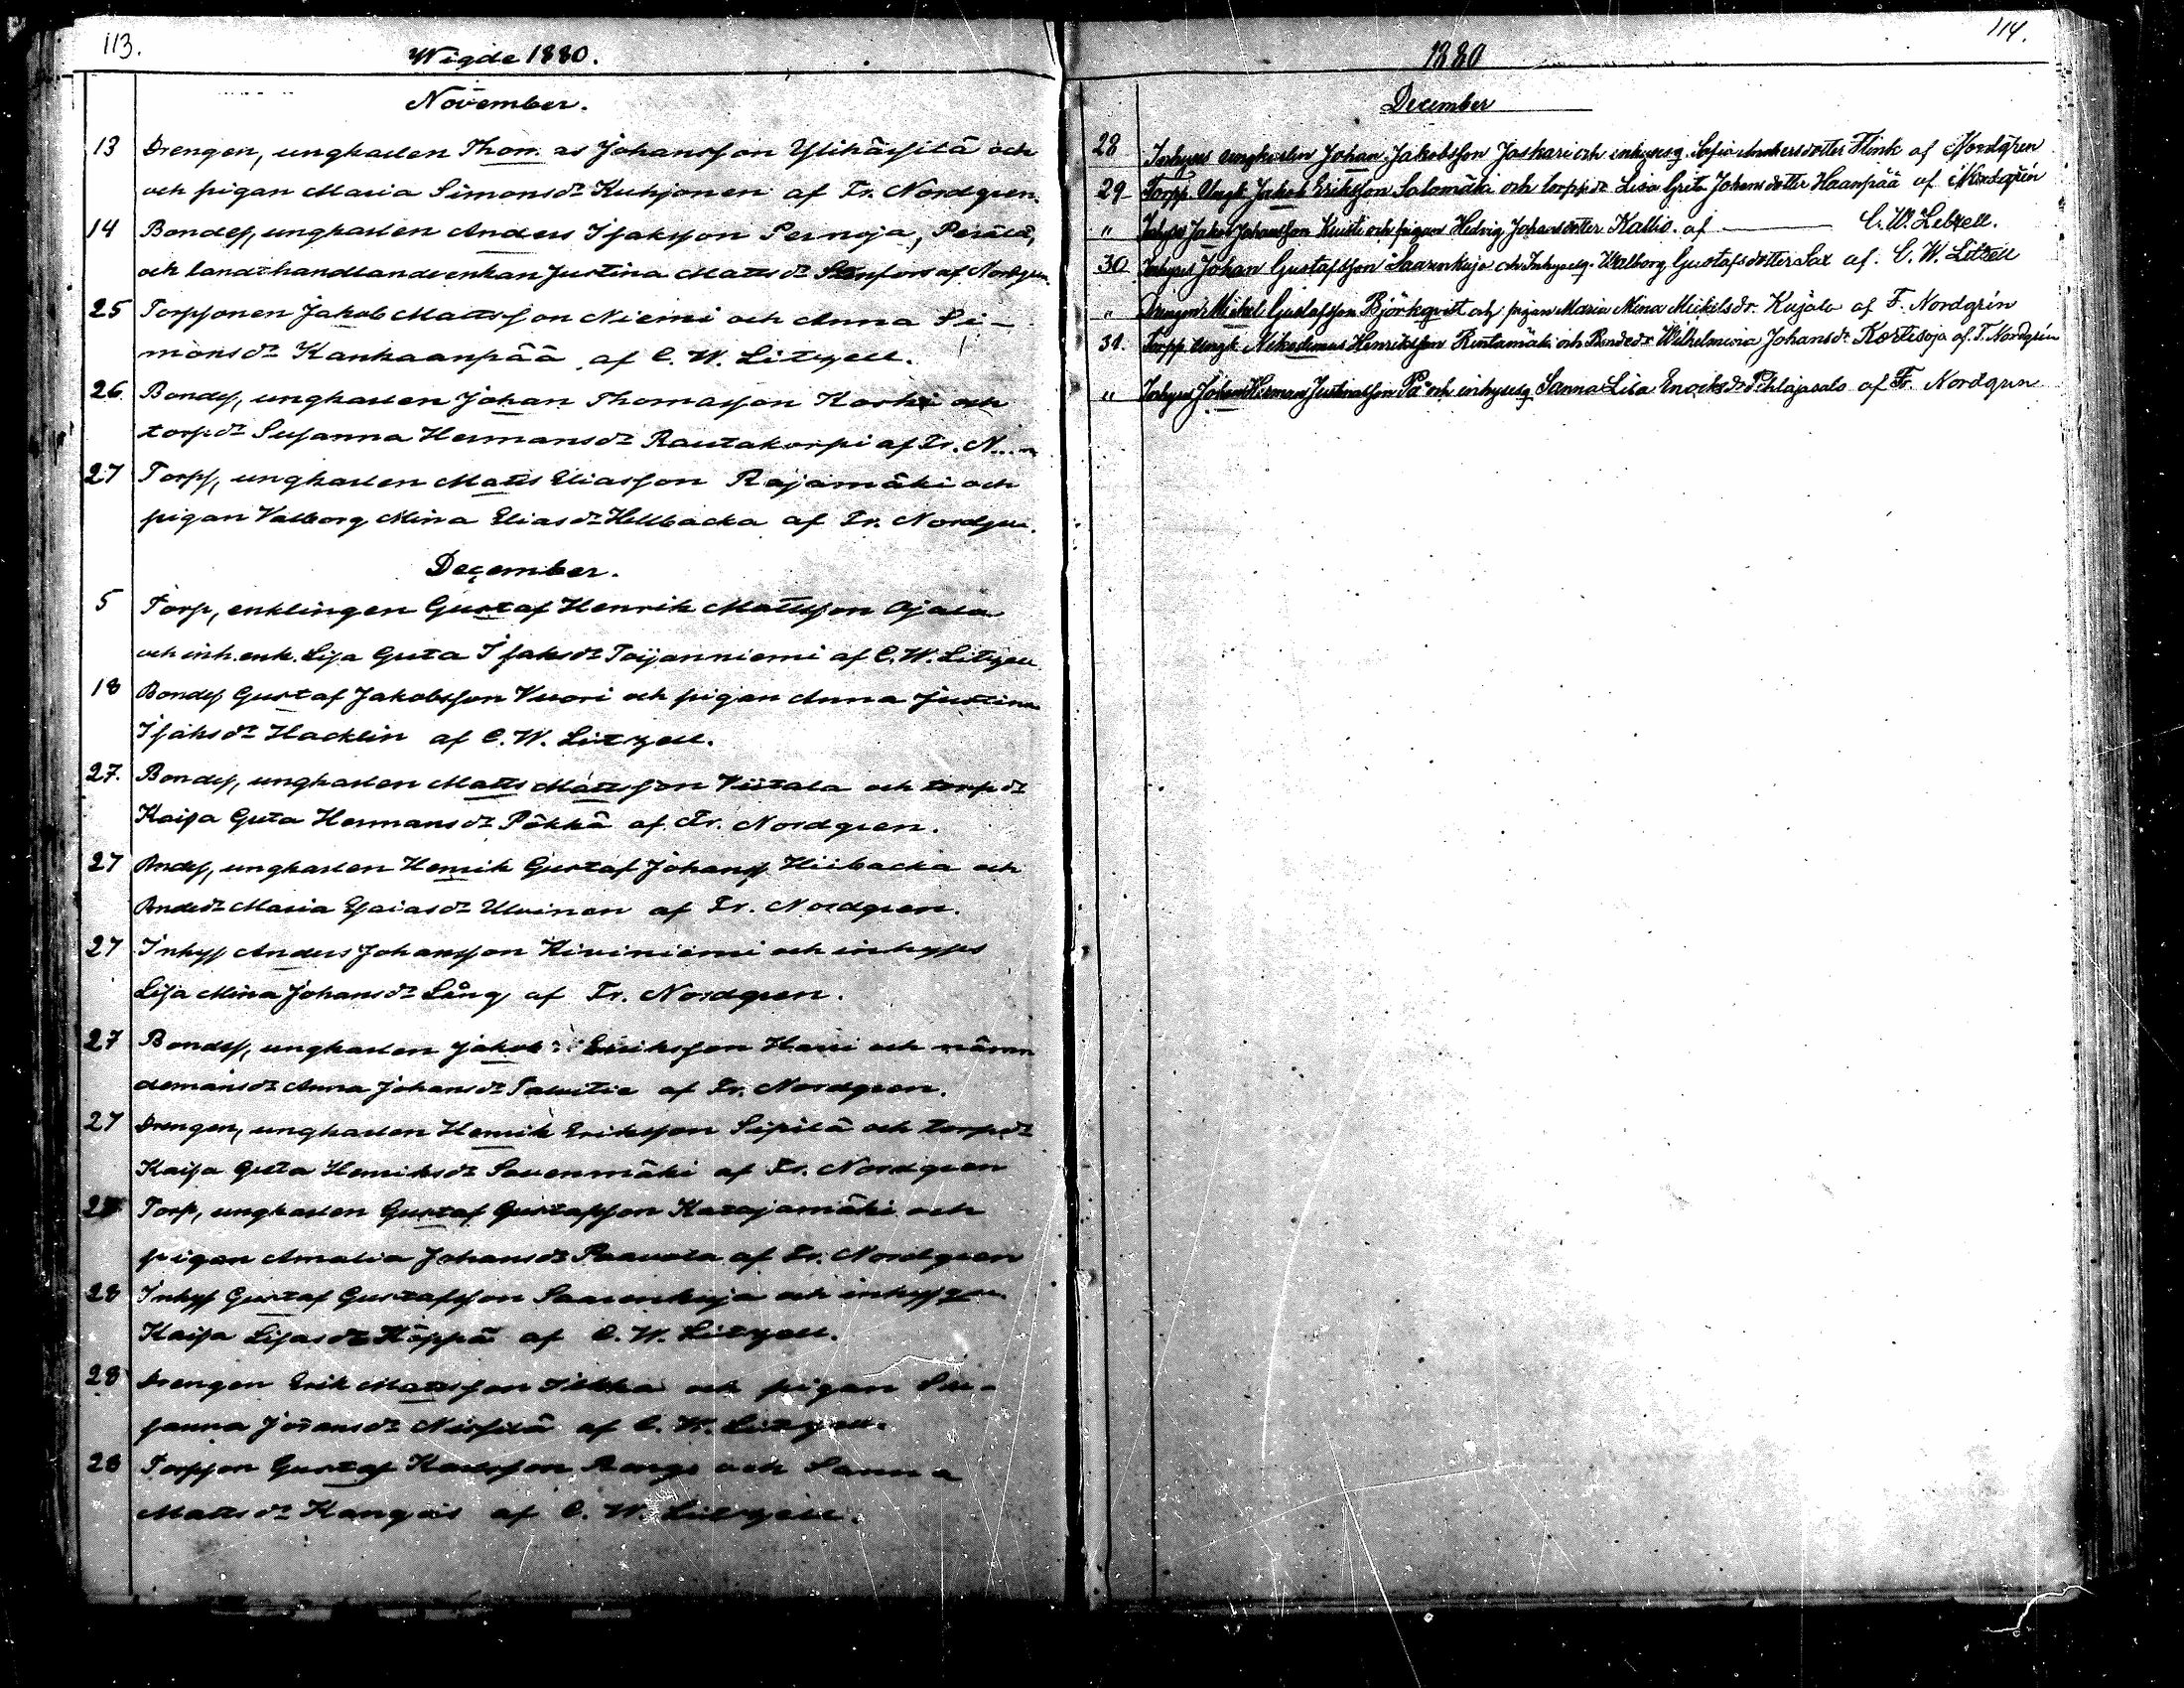 113.
Wigde 1880.
November.
13 Drengen, ungkarlen Thom as Johansson Ylihärsilä och
och pigan Maria Simonsdr Kuhjonen af Fr. Nordgren.
14 Bondes, ungkarlen Anders Isaksson Pernaja, Perälä,
och landthandlandeenkan Justina Mattsdr Stenfors af Nordgren
25 Torpsonen Jakob Mattsson Niemi och Anna Si-
monsdr Kankaanpää af C. W. Litzell.
26 Bondes, ungkarlen Johan Thomasson Korhi och
torpdr Susanna Hermansdr Rautakorpi af Fr. N...n
27 Torps, ungkarlen Matts Eliasson Rajamäki och
pigan Valborg Mina Eliasdr Hellbacka af Fr. Nordgren.
December.
5 Torp, enklingen Gustaf Henrik Mattsson Ojala
och inh. enk. Lisa Greta Isaksdr Toijanniemi af C. W. Litzell
18 Bondes Gustaf Jakobsson Vuori och pigan Anna Justina
Isaksdr Hacklin af C. W. Litzell.
27. Bondes, ungkarlen Matts Mattsson Viitala och torpdr
Kaisa Greta Hermansdr Pökkä af Fr. Nordgren.
27 Bondes, ungkarlen Henrik Gustaf Johans Hiibacka och
Bondedr Maria Esaiasdr Ulvinen af Fr. Nordgren.
27 Inhys Anders Johansson Kiviniemi och inhyses
Lisa Mina Johansdr Lång af Fr. Nordgren.
27 Bondes, ungkarlen Jakob Eriksson Harri och näm
demansdr Anna Johansdr Talvitie af Fr. Nordgren.
27 Drengen, ungkarlen Henrik Eriksson Sipilä och torpdr
Kaisa Greta Henriksdr Savenmäki af Fr. Nordgren
27 Torp, ungkarlen Gustaf Gustafsson Katajamäki och
pigan Amalia Johansdr Paavola af Fr. Nordgren
28 Inhys Gustaf Gustafsson Saarenkuja och
Kaisa Lisasdr Köppä af C. W. Litzell.
28 Drengen Erik Mattsson Ilkka och pigan Su-
sanna Johansdr af C. W. Litzell.
28 Torpson Gustaf Karlsson Rangi och Sanna
Mattsdr Kangas af C. W. Litzell.
114.
1880
December
28 Inhyses ungkarlen Johan Jakobsson Jaskari och inhysesq. Sofia Andersdotter Flink af Nordgren
29 Torpp. Ungk Jakob Eriksson Salomäki och torppdr Lisa Greta Johansdotter Haanpää af Nordgrén
" Inhyses Jakob Johansson Kuisti och pigan Hedvig Johansdotter Kallio. af C. W. Letzell.
30 Inhyses Johan Gustafsson Saarenkuja och Inhysesq. Walborg Gustafsdotter Sax af. C. W. Litzell
" Drengen Mikel Gustafsson Björkqvist och pigan Maria Mina Mickelsdr. Kujala af F. Nordgrén
31. Torpp. Ungk. Nikodemus Henriksson Rintamäki och Bondedr Wilhelmina Johansdr. Kortisoja af. F. Nordgrén
" Inhyses Johan Herman Pä och inhysesq Sanna Lisa Enoksdr Pihlajasalo af Fr. Nordgren